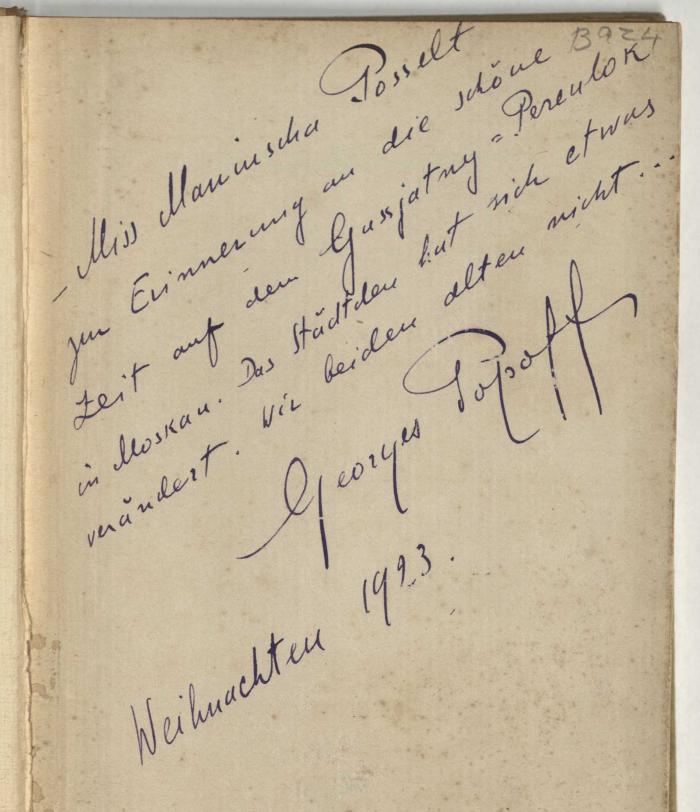 B924
- Miss Maninscha Posselt
zur Erinnerung an die schöne
Zeit auf dem Gussjatny=Pereulok
in Moskau. Das Städtchen hat sich etwas
verändert. Wir beiden alten nicht...
Georges Popoff
Weihnachten 1923.